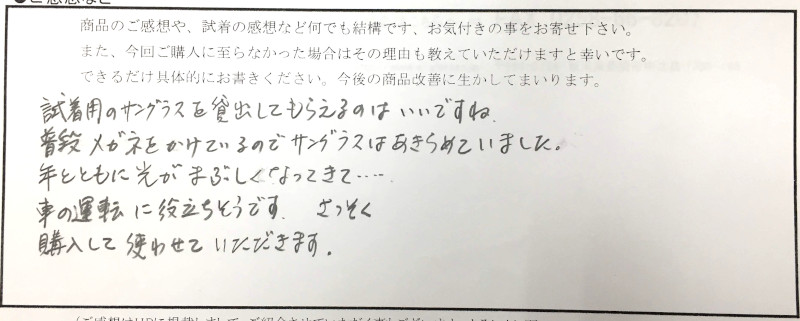 商品のご感想や、試着の感想など何でも結構です、お気付きの事をお寄せ下さい。
また、今回ご購入に至らなかった場合はその理由も教えていただけますと幸いです。
できるだけ具体的にお書きください。今後の商品改善に生かしてまいります。
試着用のサングラスを貸出してもらえるのはいいですね。
普段メガネをかけているのでサングラスはあきらめていました。
年とともに光がまぶしくなってきて……
車の運転に役立ちそうです。 さっそく
購入して使わせていただきます。